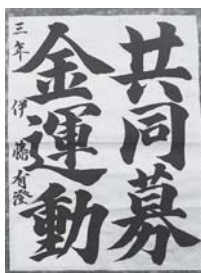 共同募
金運動
三年 伊藤有澄